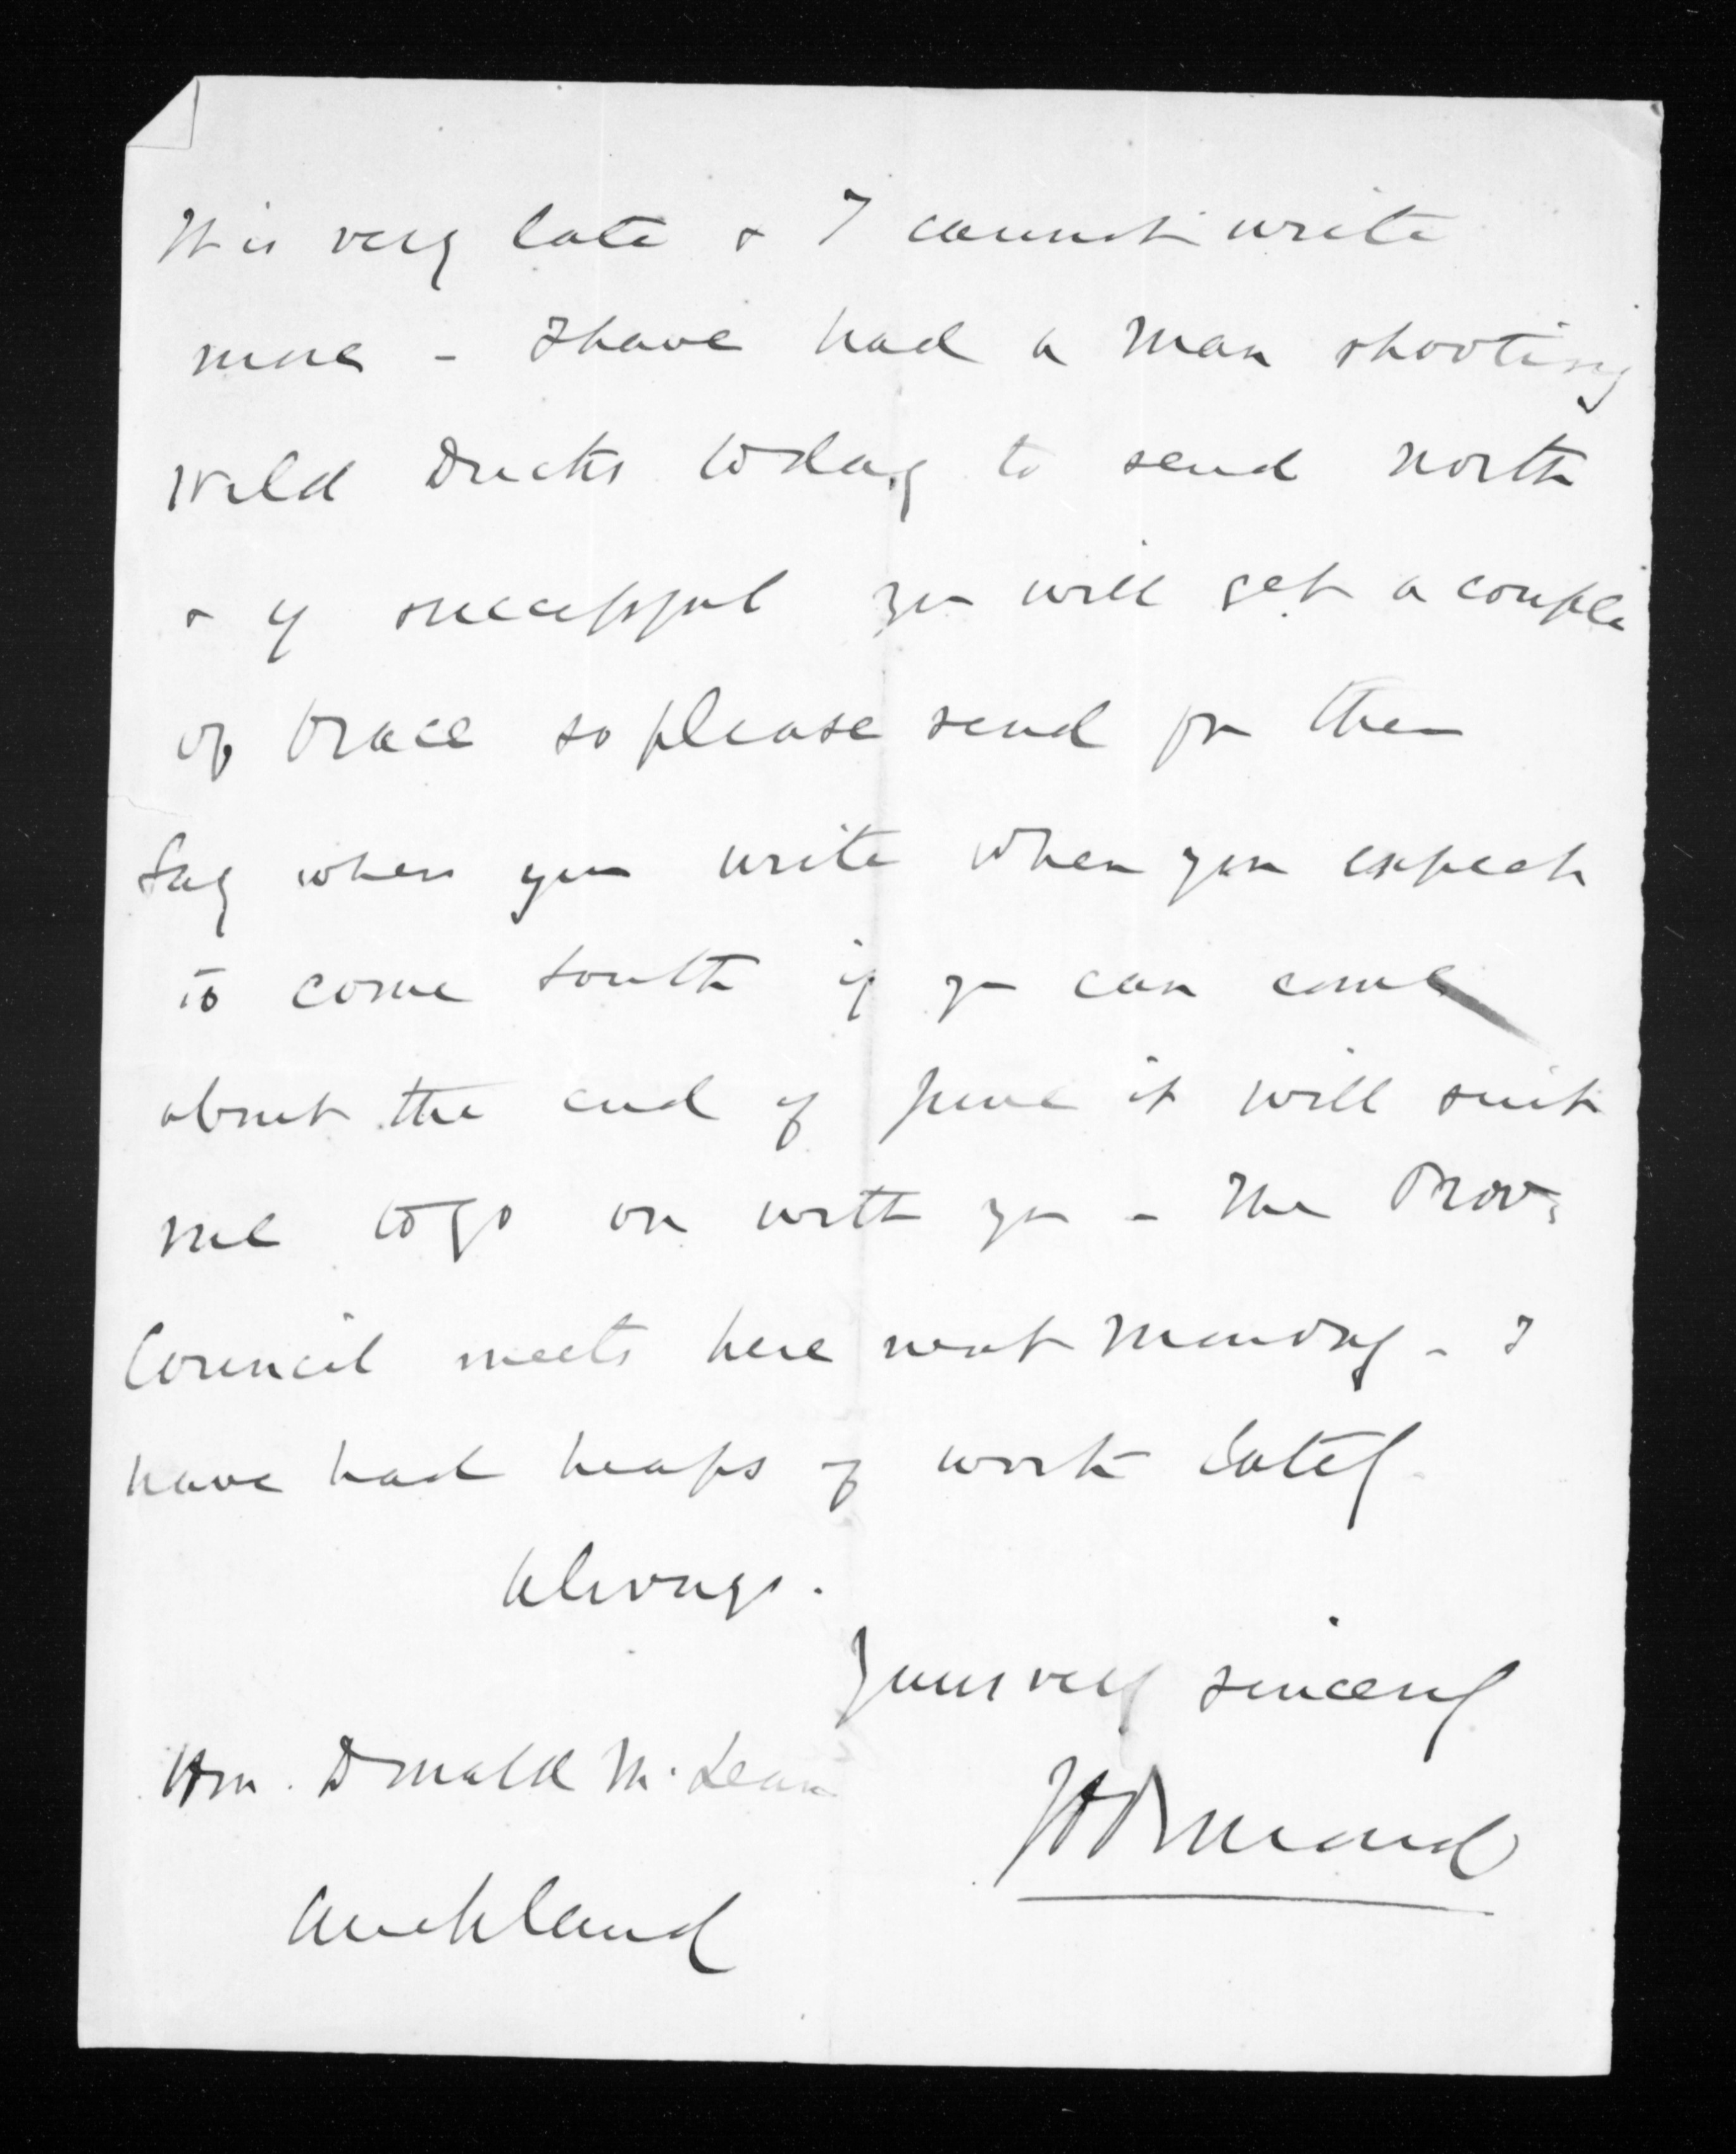 It is very late & I cannot write
more - I have had a man shooting
Wild Ducks today to send north
& if successful you will get a couple
of brace so please send for them
Say when you write when you expect
to come South if you can come
about the end of June it will suit
me to go on with you - The Prov:
Council meets here next Monday - I
have had heaps of work lately
Always.
Yours very sincerely
Hon. Donald McLean
JD Ormond
Auckland